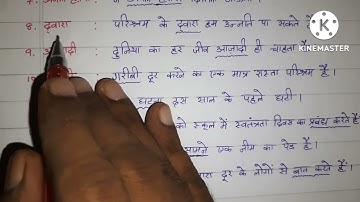 ८. द्वारा : परिश्रम के द्वारा हम उन्नति पा सकते हैं
९. आज़ादी दुनिया का हर जीव आज़ादी ही चाहता है।
१० गरीबी दूर करने का एक मात्र रास्ता परिश्रम है।
घटना दस साल के पहले घटी।
को स्कूल में स्वतंत्रता दिवस का प्रबंध करते हैं
सामने एक नीम का पेड़ है।
द्वारा दूर के लोगों से बात करते हैं।
KINEMASTER